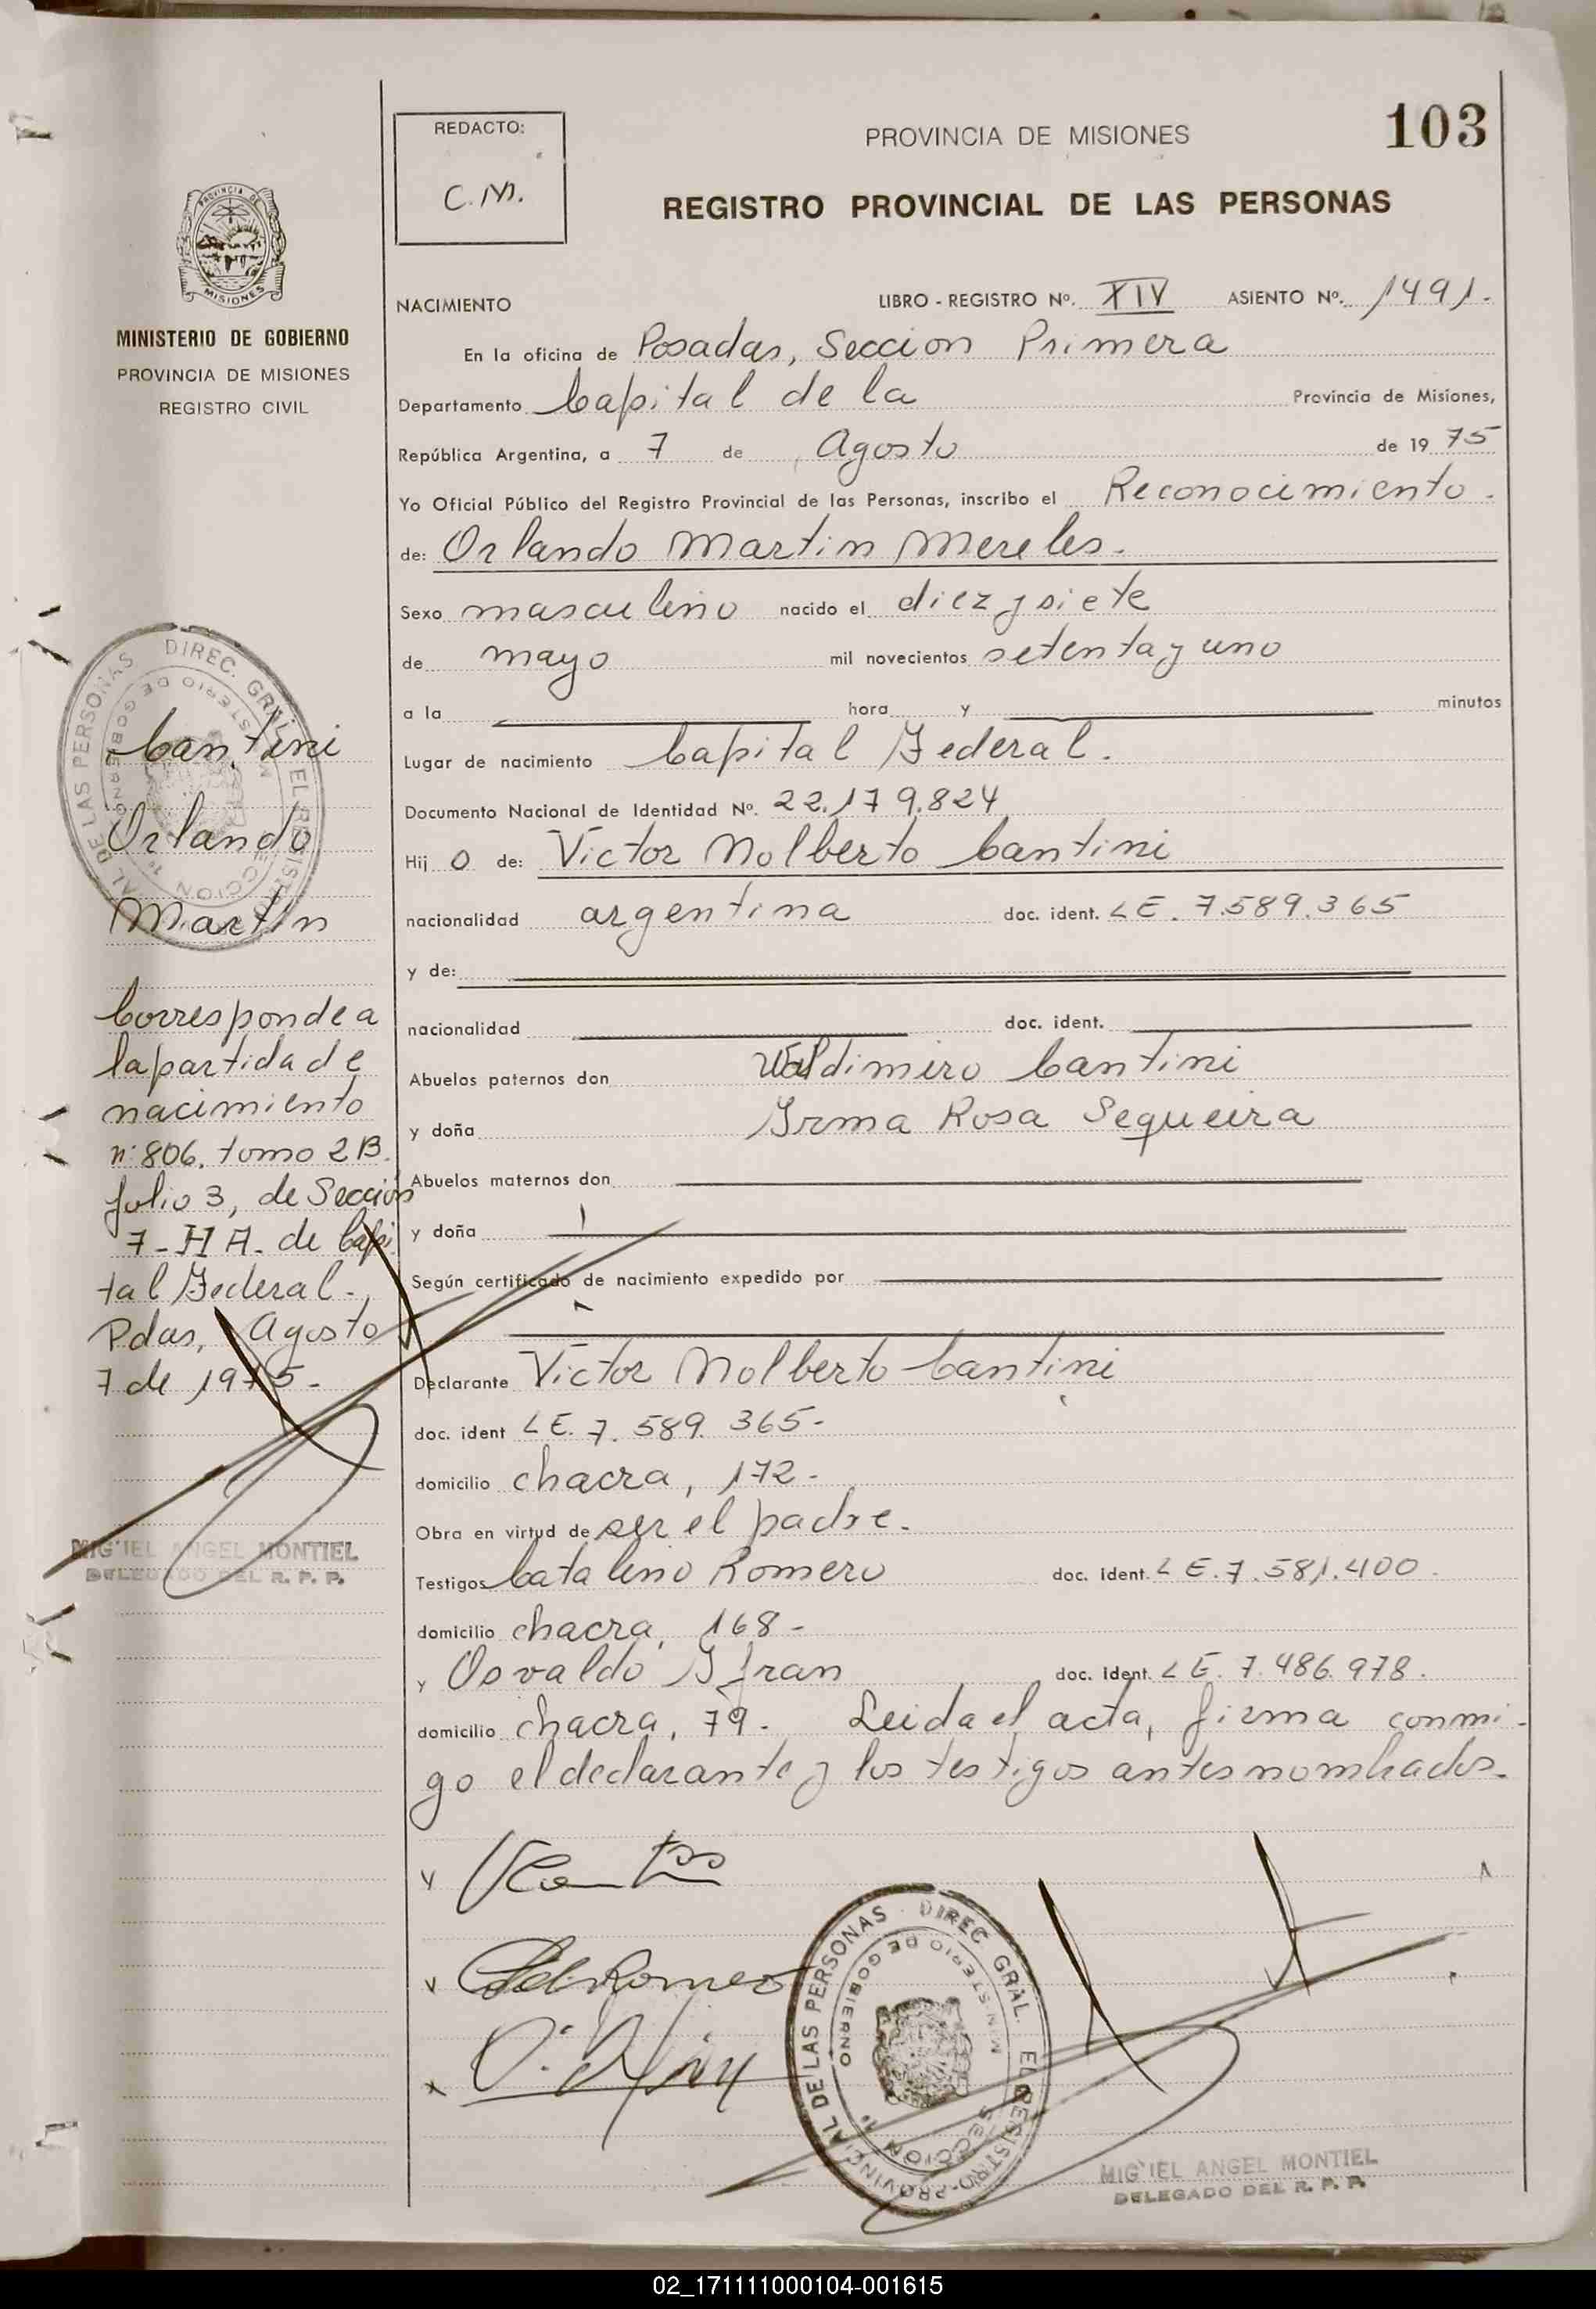 103
REDACTO:
C.M.
PROVINCIA DE MISIONES
REGISTRO PROVINCIAL DE LAS PERSONAS
PROVINCIA DE
MISIONES
MINISTERIO DE GOBIERNO
PROVINCIA DE MISIONES
REGISTRO CIVIL
NACIMIENTO LIBRO - REGISTRO Nº. XIV ASIENTO Nº. 1491.
En la oficina de Posadas, Seccion Primera
Departamento Capital de la Provincia de Misiones,
República Argentina, a 7 de Agosto de 1975
Yo Oficial Público del Registro Provincial de las Personas, inscribo el Reconocimiento.
de: Orlando Martin Mereles.
Sexo masculino nacido el diez y siete
de mayo mil novecientos setenta y uno
a la hora y minutos
Lugar de nacimiento Capital Federal.
Documento Nacional de Identidad Nº. 22.179.824
Hij o de: Victor Nolberto Cantini
nacionalidad argentina doc. ident. LE. 7.589.365
y de:
nacionalidad doc. ident.
Abuelos paternos don Waldimiro Cantini
y doña Irma Rosa Sequeira
Abuelos maternos don
y doña
Según certificado de nacimiento expedido por
Declarante Victor Nolberto Cantini
doc. ident LE. 7.589.365-
domicilio chacra, 172-
Obra en virtud de ser el padre.
Testigos Catalino Romero doc. ident. LE. 7.581.400.
domicilio chacra, 168-
y Osvaldo Ifran doc. ident. LE. 7.486.978.
domicilio chacra, 79. Leida el acta, firma conmi-
go el declarante y los testigos antes nombrados.
Cantini
Orlando
Martin
Corresponde a
la partida de
nacimiento
nº 806. tomo 2B.
folio 3, de Sección
7-HA- de Capi
tal Federal-
Pdas, Agosto
7 de 1975-
MIGUEL ANGEL MONTIEL
DELEGADO DEL R. P. P.
DIREC. GRAL. EL REGISTRO PROVINCIAL DE LAS PERSONAS
MINISTERIO DE GOBIERNO
SECCION 1ª
DIREC. GRAL. EL REGISTRO PROVINCIAL DE LAS PERSONAS
MINISTERIO DE GOBIERNO
SECCION 1ª
MIGUEL ANGEL MONTIEL
DELEGADO DEL R. P. P.
02_171111000104-001615